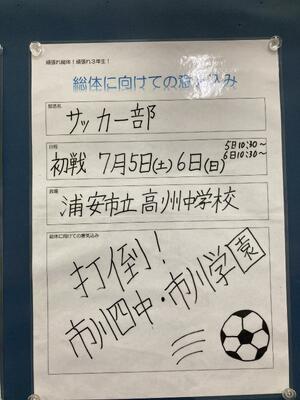 頑張れ総体！頑張れ３年生！
総体に向けての意気込み
部活名
サッカー部
日程
初戦 7月5日(土) 6日(日) 5日10:30〜
6日10:30〜
会場
浦安市立高州中学校
総体に向けての意気込み
打倒！
市川四中・市川学園